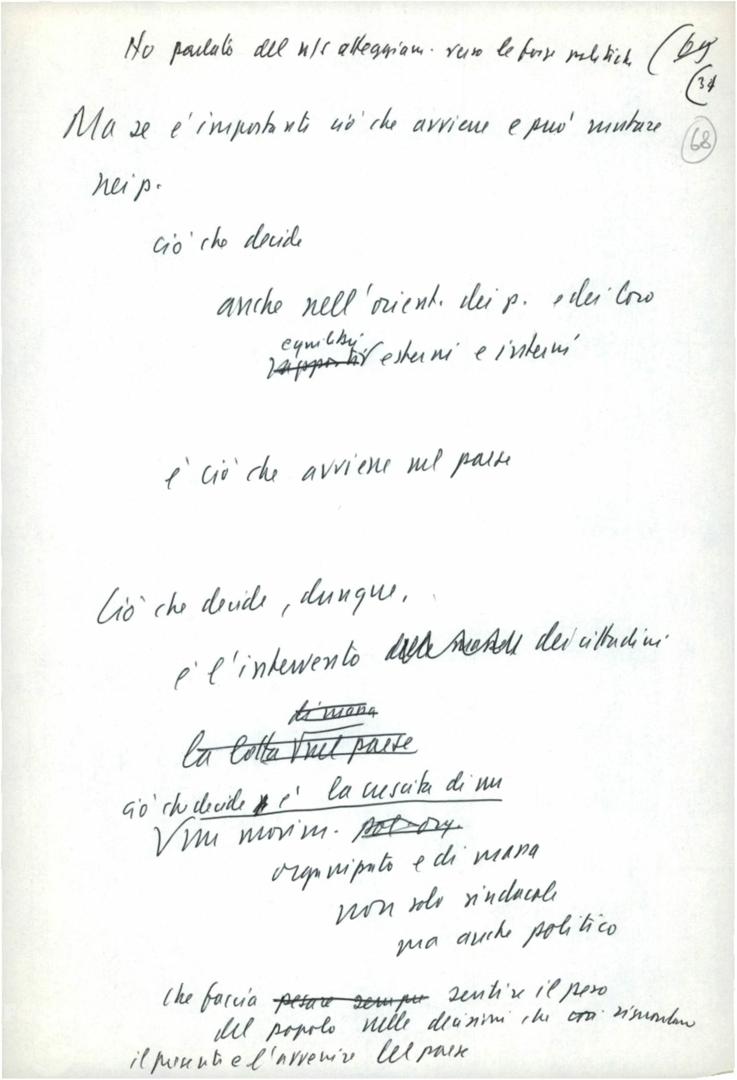 Ho parlato del n/s atteggiam. verso le forze politiche (65
(34
68
Ma se è importante ciò che avviene e può mutare
nei p.
ciò che decide
anche nell'orient. dei p. e dei loro
equilibri
rapporti esterni e interni
è ciò che avviene nel paese
Ciò che decide, dunque,
è l'intervento delle masse dei cittadini
di massa
la lotta nel paese
ciò che decide è la crescita di un
un movim. pol-org.
organizzato e di massa
non solo sindacale
ma anche politico
che faccia pesare sempre sentire il peso
del popolo nelle decisioni che
il presente e l'avvenire del paese